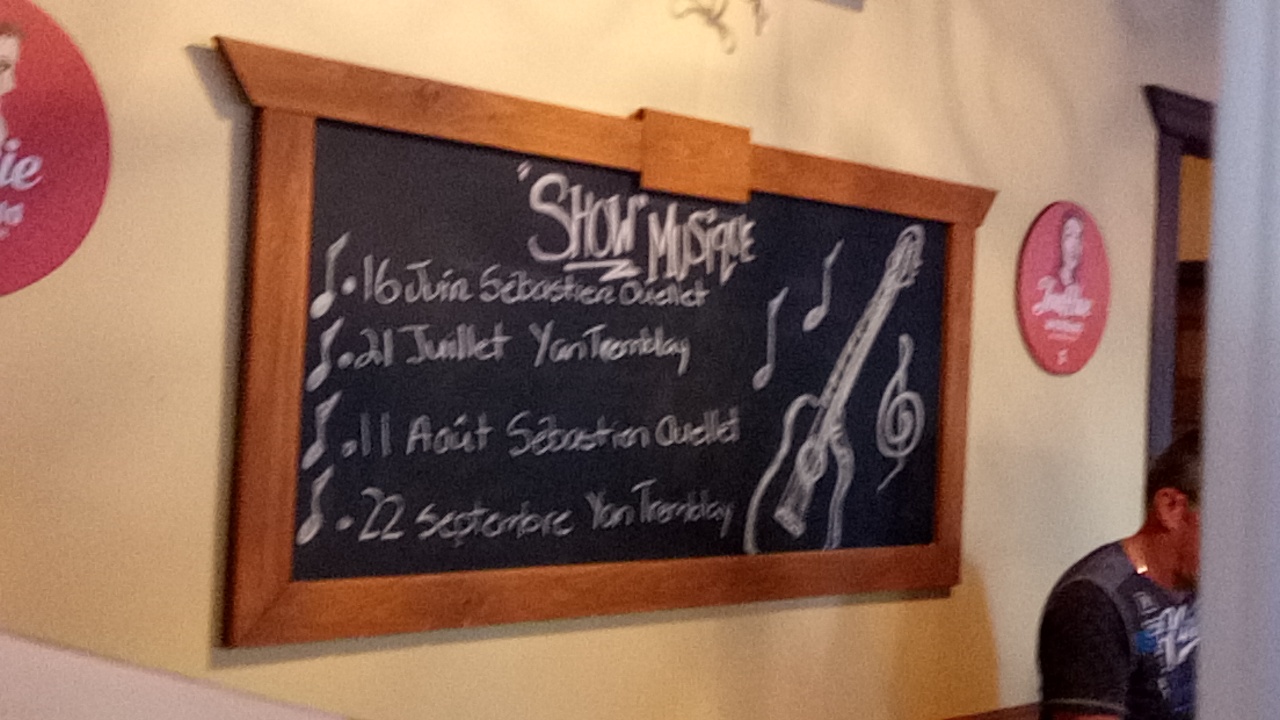 "SHOW" MUSIQUE
• 16 Juin Sébastien Ouellet
• 21 Juillet Yan Tremblay
• 11 Août Sébastien Ouellet
• 22 Septembre Yan Tremblay
ie